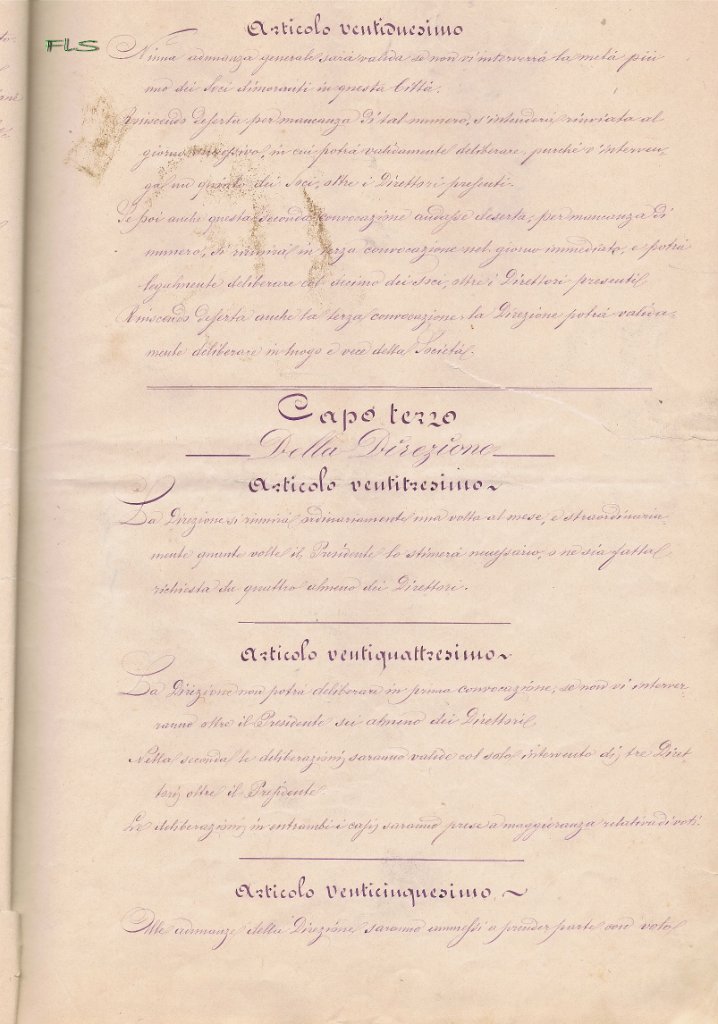 Articolo ventiduesimo
FLS
Niuna adunanza generale sarà valida se non vi interverrà la metà più
uno dei Soci dimoranti in questa Città.
Riuscendo deserta per mancanza di tal numero, s'intenderà rinviata al
giorno successivo, in cui potrà validamente deliberare, purchè v'interven-
ga un quinto dei Soci, oltre i Direttori presenti.
Se poi anche questa seconda convocazione andasse deserta, per mancanza di
numero, si riunirà in terza convocazione nel giorno immediato, e potrà
legalmente deliberare col decimo dei soci, oltre i Direttori presenti.
Riuscendo deserta anche la terza convocazione, la Direzione potrà valida-
mente deliberare in luogo e vece della Società.
Capo terzo
Della Direzione
Articolo ventitresimo
La Direzione si riunirà ordinariamente una volta al mese, e straordinaria-
mente quante volte il Presidente lo stimerà necessario, o ne sia fatta
richiesta da quattro almeno dei Direttori.
Articolo ventiquattresimo
La Direzione non potrà deliberare in prima convocazione, se non vi interver-
ranno oltre il Presidente sei almeno dei Direttori.
Nella seconda le deliberazioni saranno valide col solo intervento di tre Diret-
tori oltre il Presidente.
Le deliberazioni in entrambi i casi saranno prese a maggioranza relativa di voti.
Articolo venticinquesimo
Alle adunanze della Direzione saranno ammessi a prender parte con voto